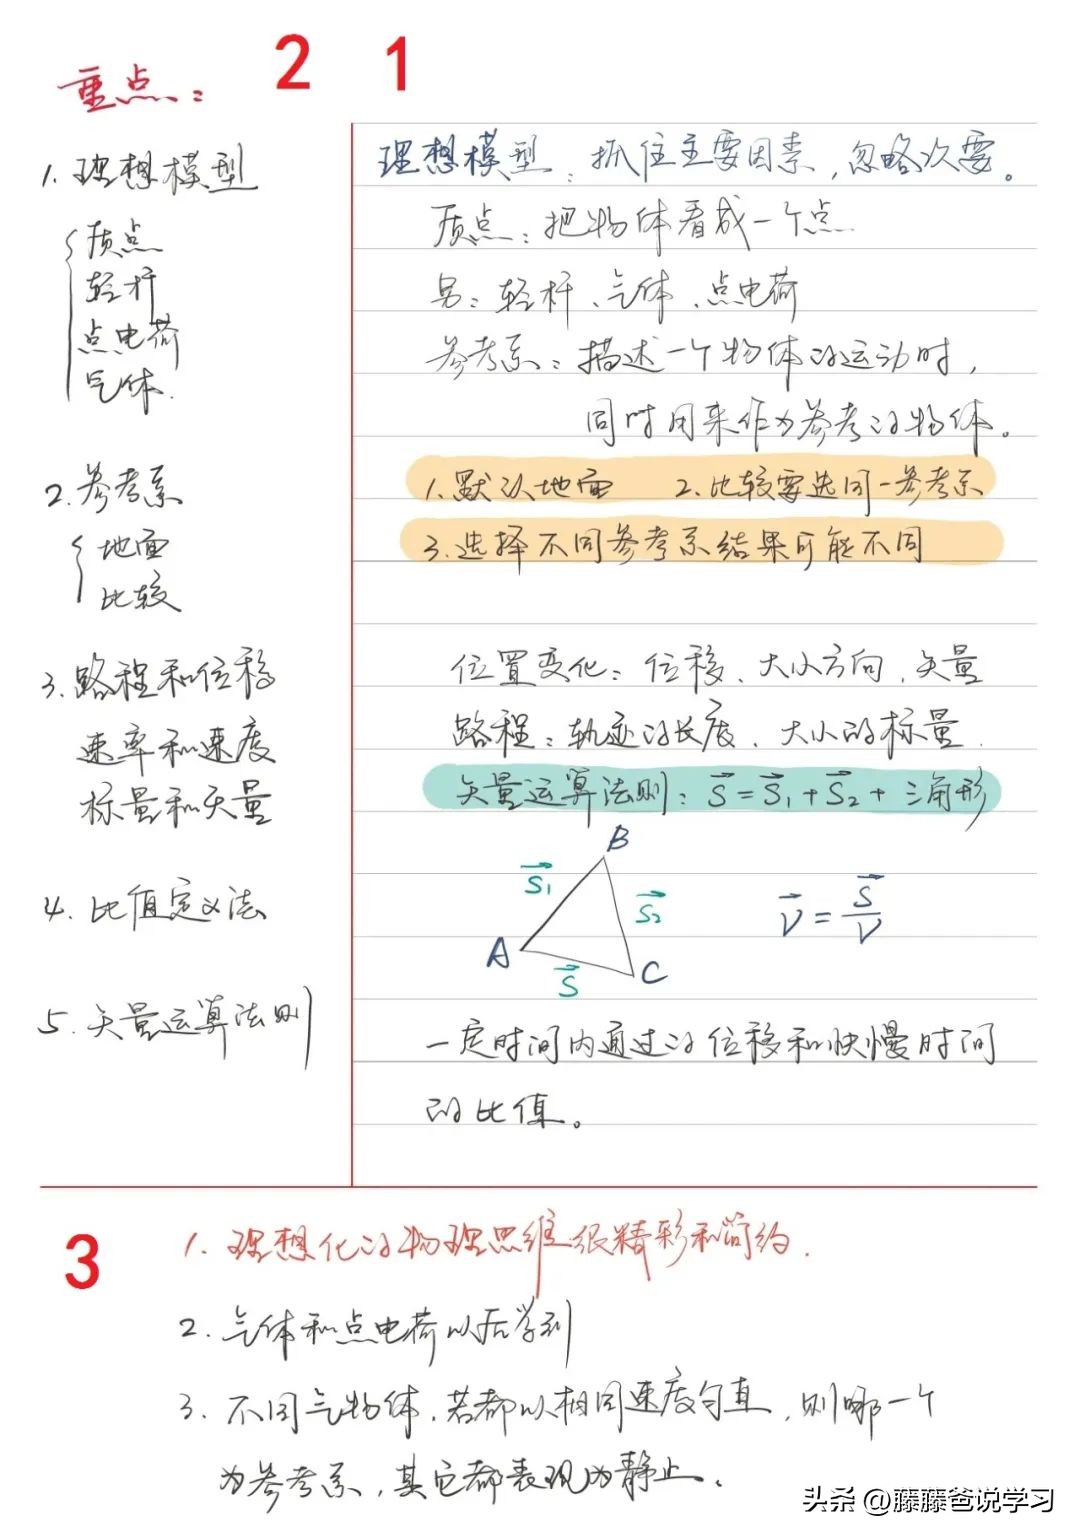 2 1
重点：
1. 理想模型
质点
轻杆
点电荷
气体.
2. 参考系
地面
比较
3. 路程和位移
速率和速度
标量和矢量
4. 比值定义法
5. 矢量运算法则
理想模型：抓住主要因素，忽略次要。
质点：把物体看成一个点.
另：轻杆、气体、点电荷
参考系：描述一个物体的运动时，
同时用来作为参考的物体。
1. 默认地面 2. 比较要选同一参考系
3. 选择不同参考系结果可能不同
位置变化：位移、大小方向、矢量
路程：轨迹的长度、大小的标量.
矢量运算法则：S⃗=S⃗₁+S⃗₂+三角形
B
S⃗₁
S⃗₂
A
S⃗
C
V⃗=S⃗/V
一定时间内通过的位移和快慢时间
的比值。
3
1. 理想化的物理思维很精彩和简约.
2. 气体和点电荷以后学到
3. 不同气物体，若都以相同速度匀直，则哪一个
为参考系，其它都表现为静止.
头条 @藤藤爸说学习